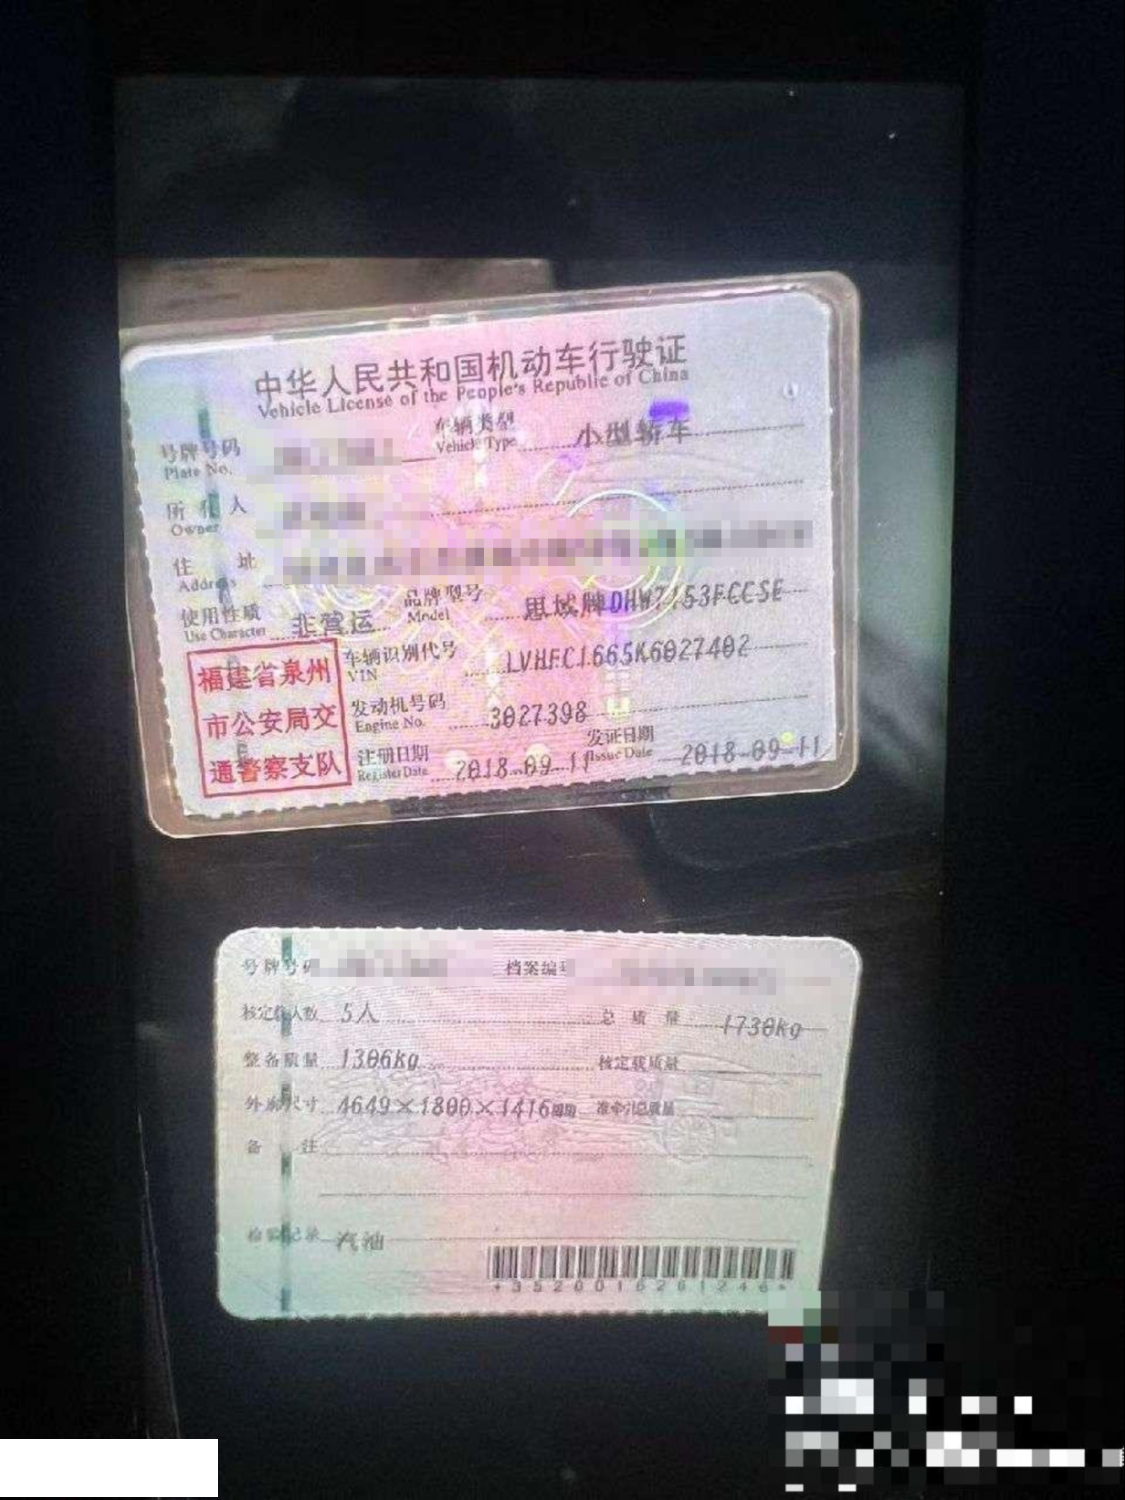 中华人民共和国机动车行驶证
Vehicle License of the People's Republic of China
号牌号码 车辆类型 小型轿车
Plate No. Vehicle Type
所有人
Owner
住 址
Address
使用性质 非营运 品牌型号 思域牌DHW7153FCCSE
Use Character Model
福建省泉州
市公安局交
通警察支队
车辆识别代号 LVHFC1665K6027402
VIN
发动机号码 3027398
Engine No.
注册日期 2018-09-11 发证日期 2018-09-11
Register Date Issue Date
号牌号码 档案编号
核定载人数 5人 总质量 1730kg
整备质量 1306kg 核定载质量
外廓尺寸 4649×1800×1416mm 准牵引总质量
备 注
检验记录 汽油
*3520016261246*